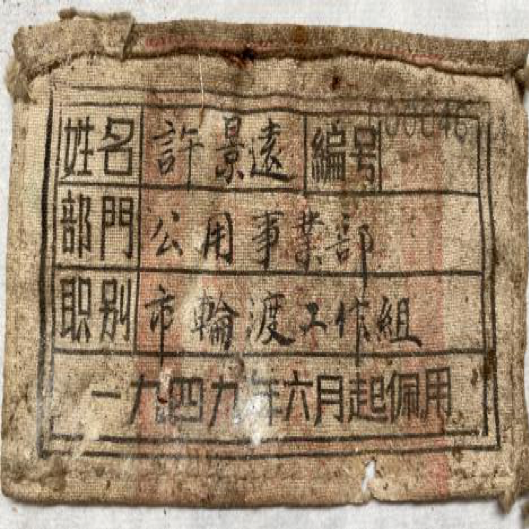 姓名 許景遠 編号 000646
部門 公用事業部
职别 市輪渡工作組
一九四九年六月起佩用